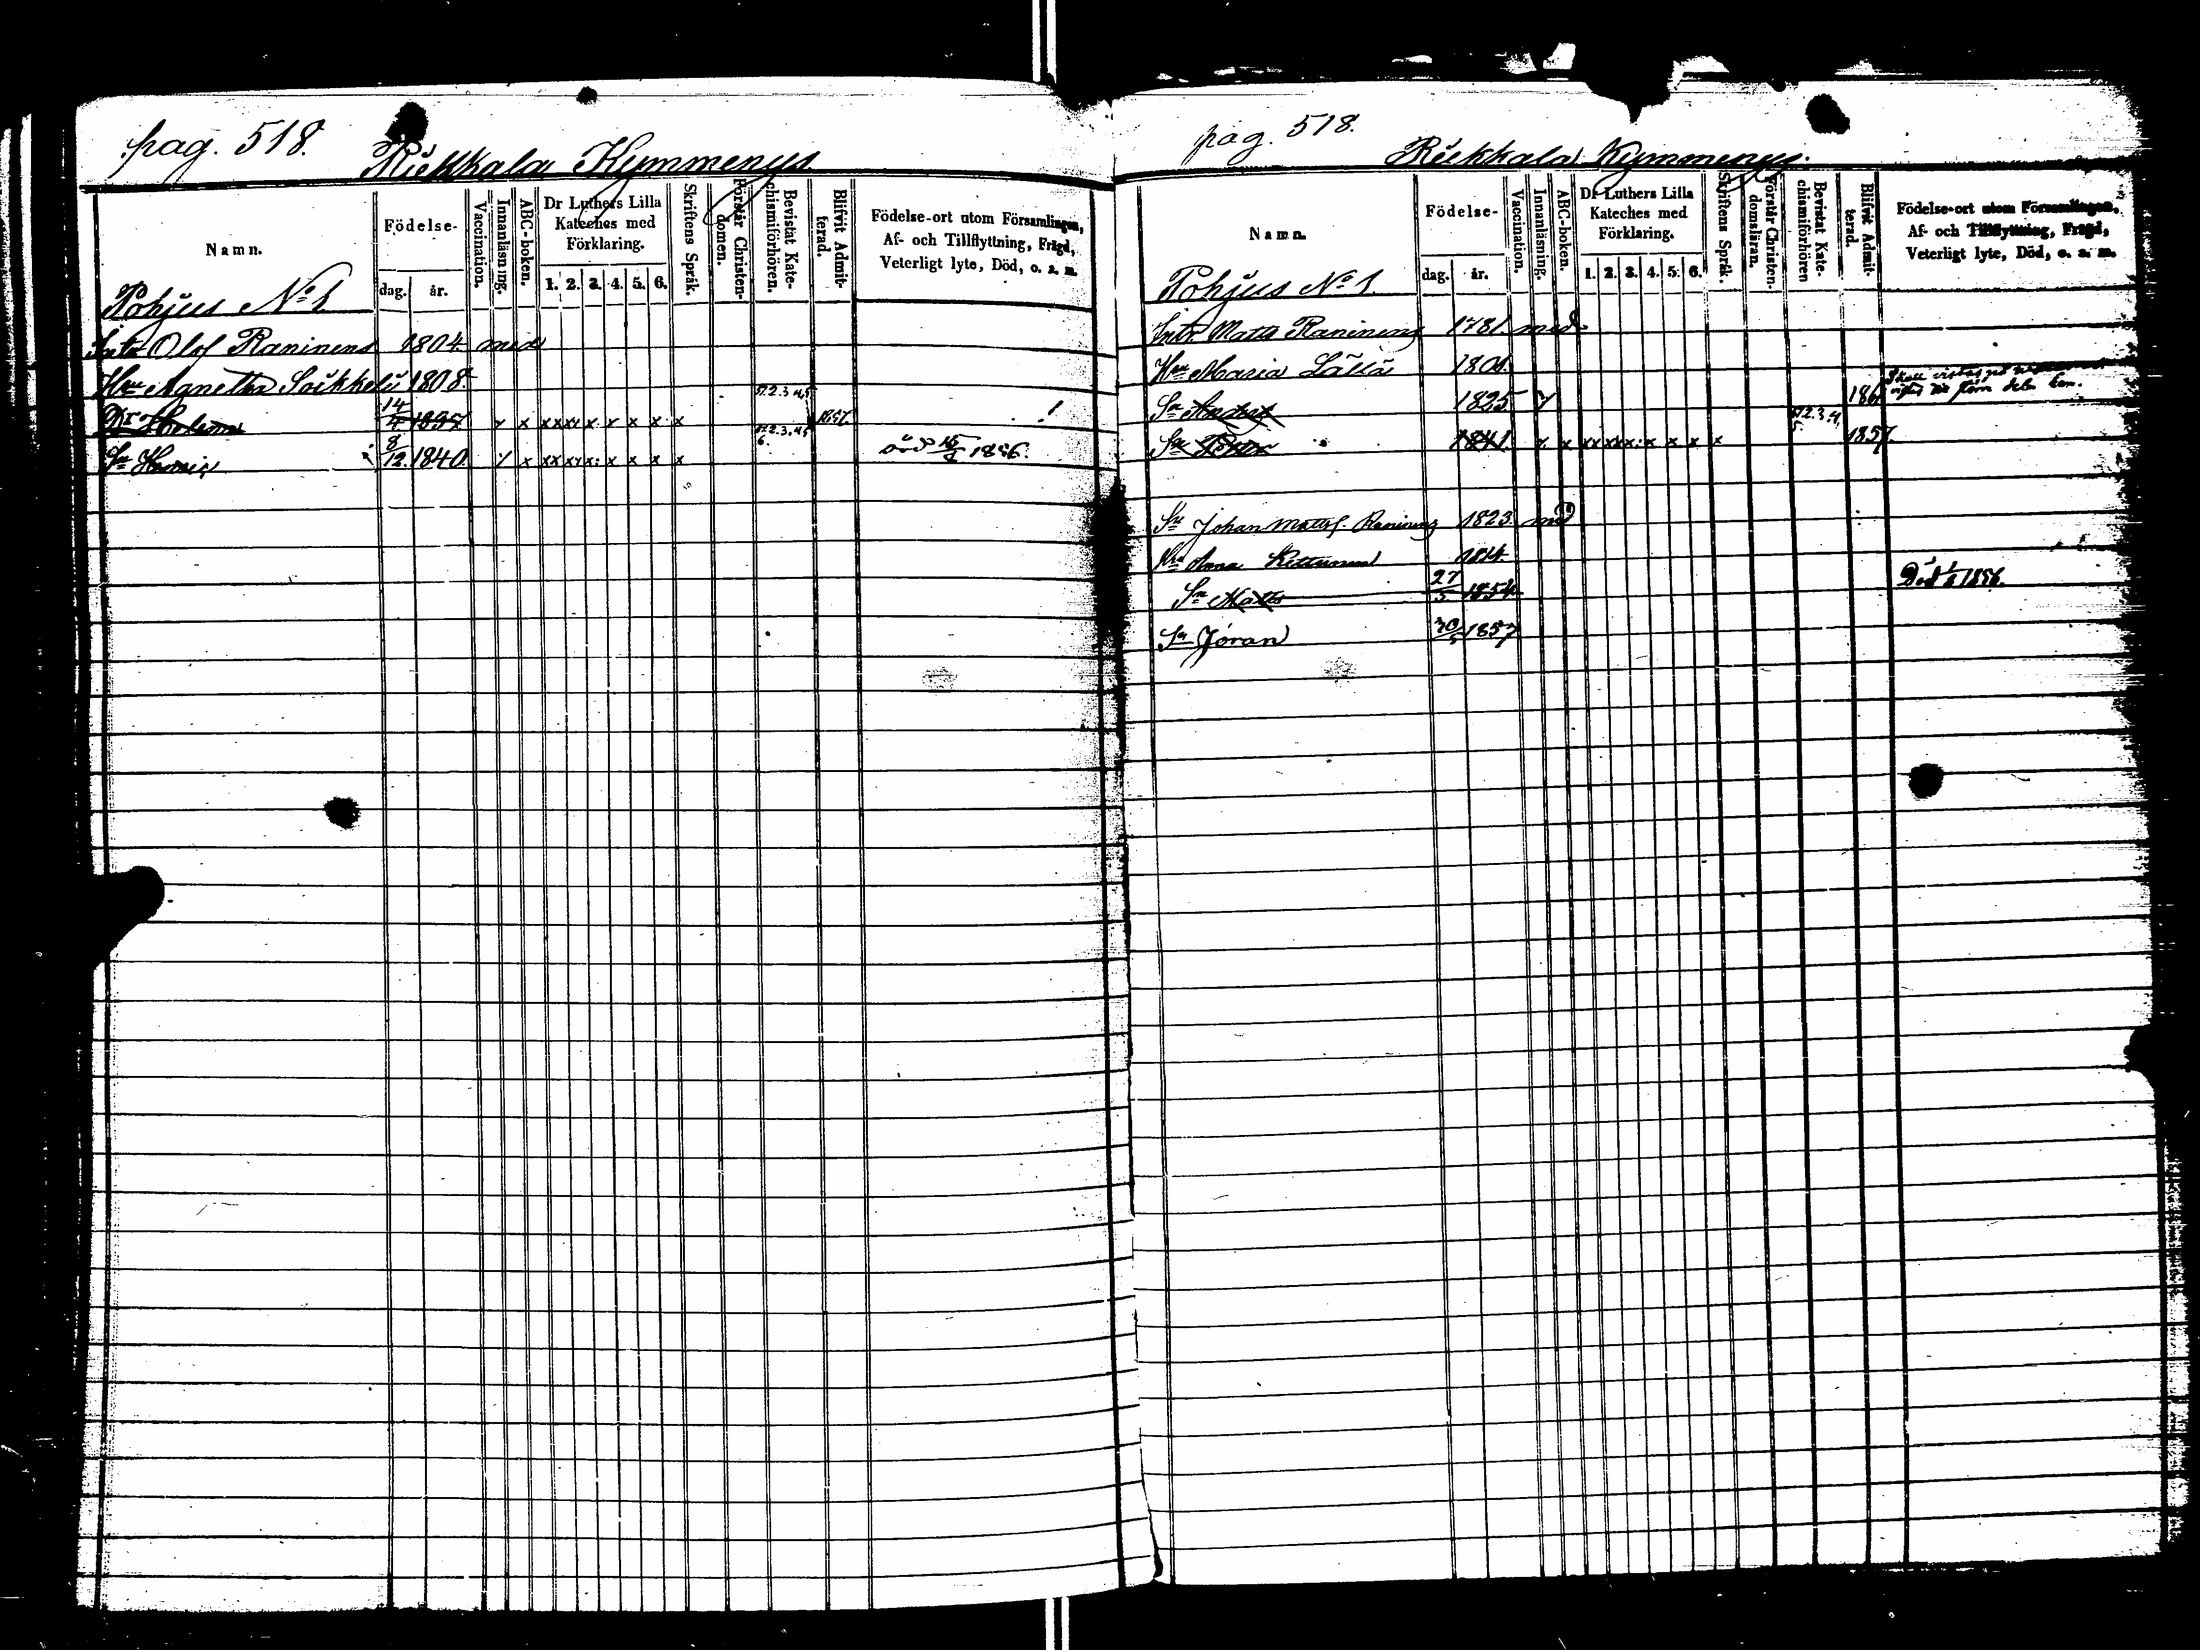 pag. 518.
Riekkala Kymmenys.
Namn.
Födelse-
dag. år.
Vaccination.
Innanläsning.
ABC-boken.
Dr Luthers Lilla
Kateches med
Förklaring.
1. 2. 3. 4. 5. 6.
Skriftens Språk.
Förstår Christen-
domen.
Bevistat Kate-
chismiförhören.
Blifvit Admit-
terad.
Födelse-ort utom Församlingen,
Af- och Tillflyttning, Frägd,
Veterligt lyte, Död, o. s. m.
Pohjus No 1.
Olof Raninens 1804 med
Hru Agnetha Soikkeli 1808.
Dr Helena 14/4 1837 x x x x x x x x x 57.2.3.4.5 1857.
Sn 8/12 1840. x x x x x x x x 57.2.3.4.5 6. död 15/4 1856.
pag. 518.
Riekkala Kymmenys.
Namn.
Födelse-
dag. år.
Vaccination.
Innanläsning.
ABC-boken.
Dr Luthers Lilla
Kateches med
Förklaring.
1. 2. 3. 4. 5. 6.
Skriftens Språk.
Förstår Christen-
domsläran.
Bevistat Kate-
chismiförhören
Blifvit Admit-
terad.
Födelse-ort utom Församlingen,
Af- och Tillflyttning, Frägd,
Veterligt lyte, Död, o. s. m.
Pohjus No 1.
Matts Raninens 1781 med
Hru Maria Lällä 1801.
Sn Anders 1825
Sn Petter 1841. x x x x x x x x x 1857.
Sn Johan Mattsf. Raninens 1823. med
Hru Anna Kettunen 1814.
Sn Matts 27/5 1854 Död 1856.
Sn Jöran 30/5 1857